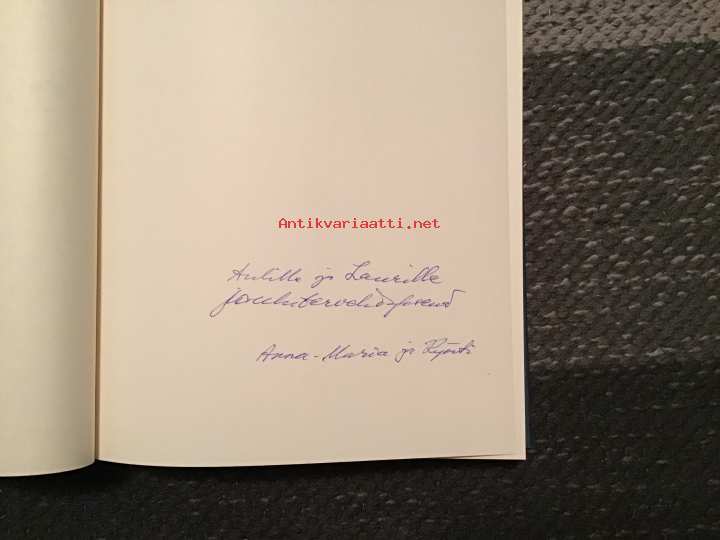 Antikvariaatti.net
Aulille ja Laurille
joulutervehdyksenä
Anna-Maria ja Kyösti